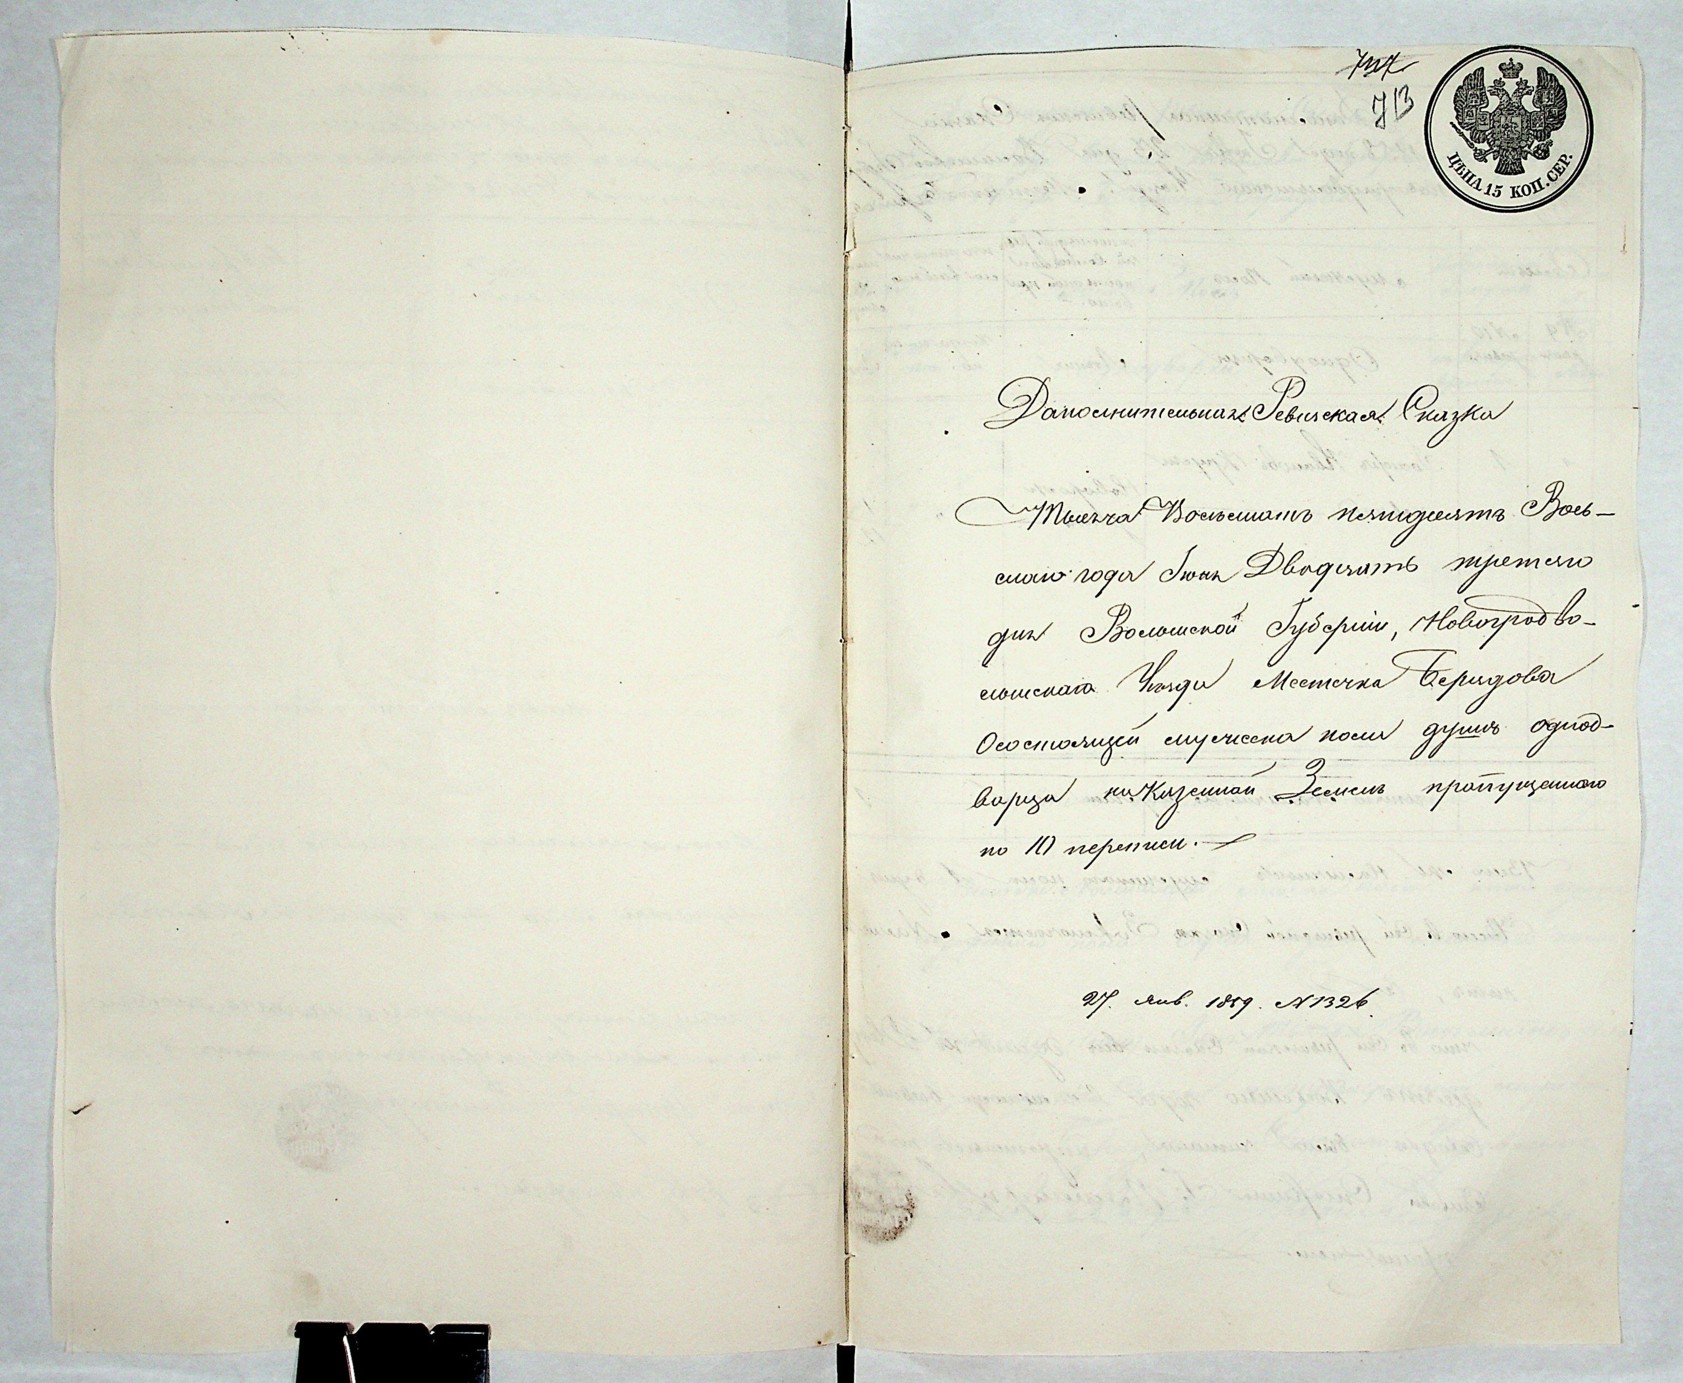 713
ЦѢНА 15 КОП. СЕР.
Дополнительная Ревизская Сказка
Тысяча Восемьсотъ пятидесятъ Вось-
маго года Іюня Двадцать третяго
дня Волынской Губерніи, Новоградво-
лынскаго Уѣзда Местечка Берздова
Осостоящей мужеска пола душъ однод-
ворца на Казенной Земелъ пропущеннаго
по 10 переписи.
27. Янв. 1859. N 1326.